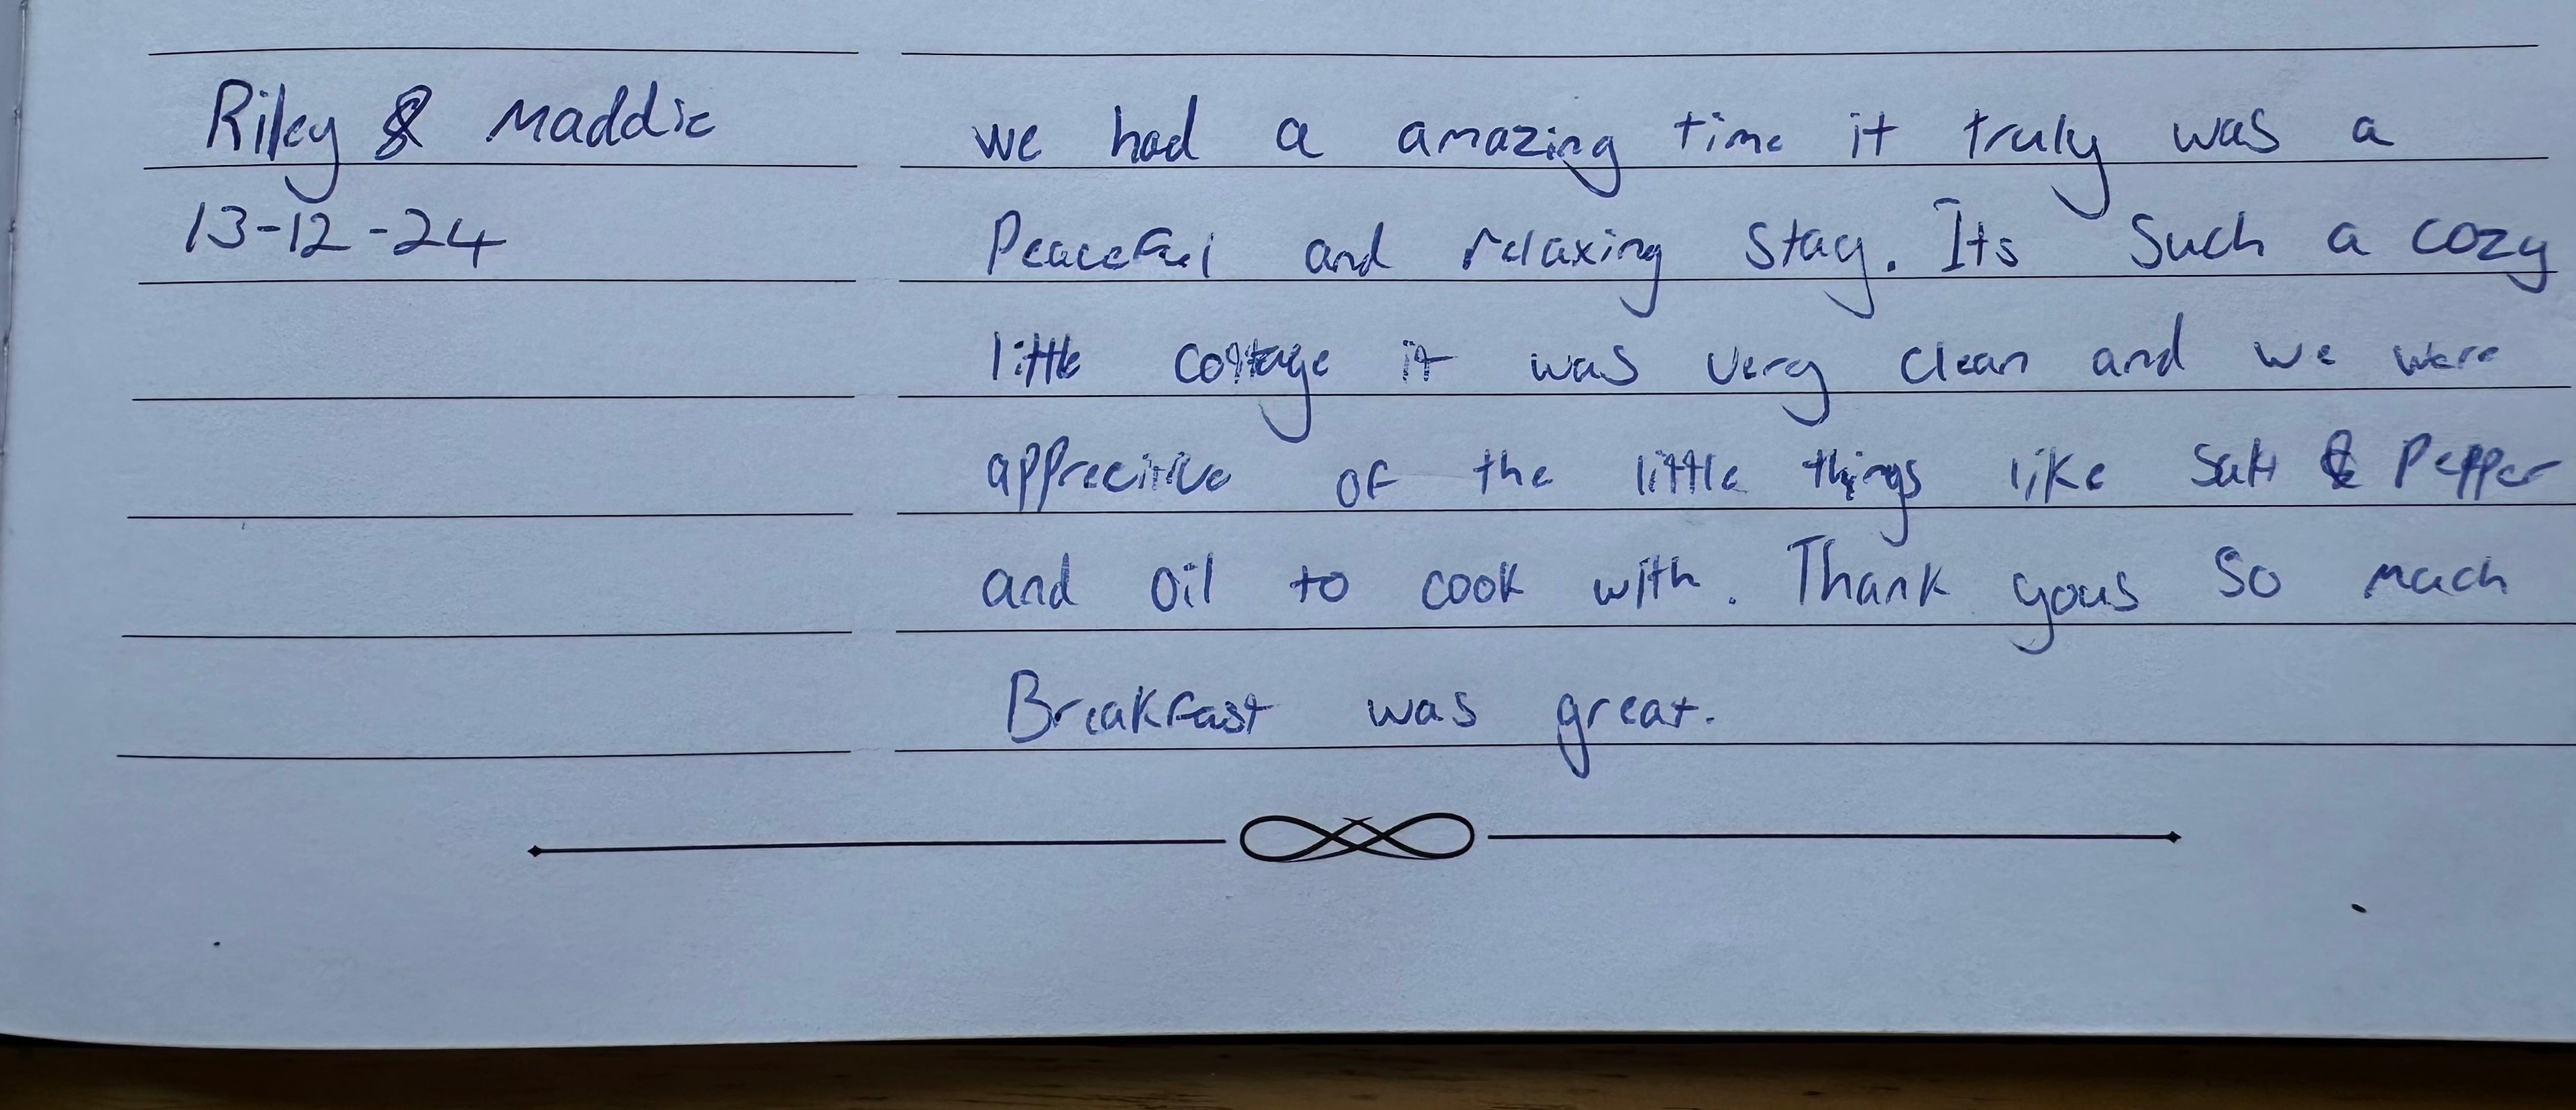 Riley & Maddie
13-12-24
we had a amazing time it truly was a
Peaceful and relaxing stay. Its such a cozy
little cottage it was very clean and we were
apprecitive of the little things like salt & Pepper
and oil to cook with. Thank yous so much
Breakfast was great.